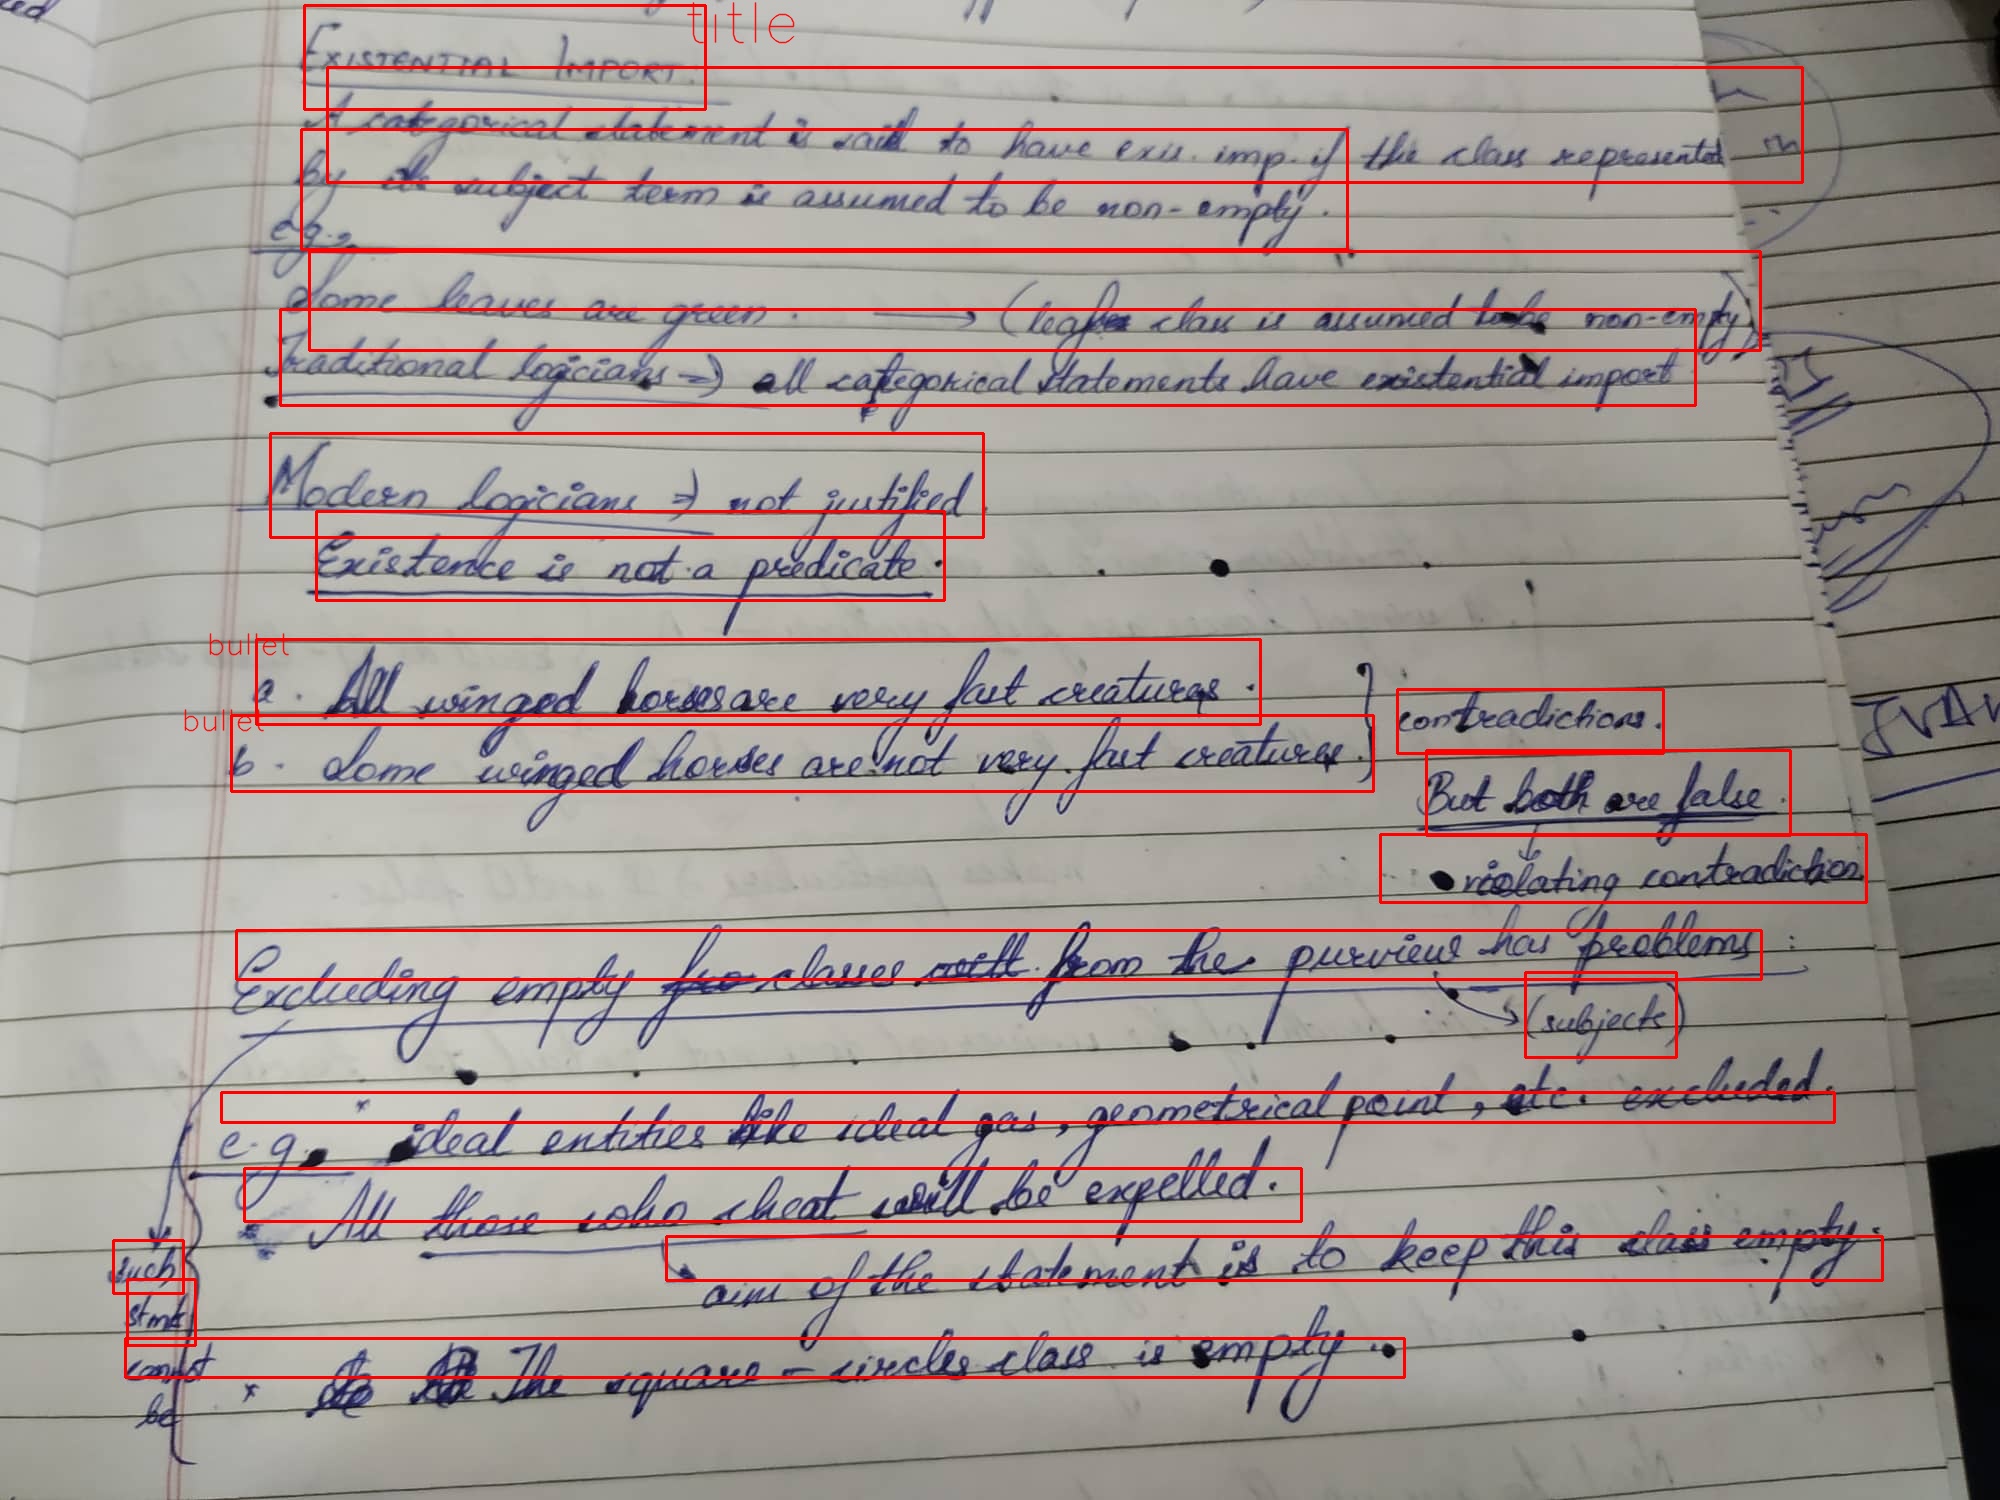 title
EXISTENTIAL IMPORT.
A categorical statement is said to have exis. imp. if the class represented
by its subject term is assumed to be non-empty.
e.g.,
Some leaves are green. → (leaf class is assumed to be non-empty)
Traditional logicians ⇒ all categorical statements have existential import
Modern logicians ⇒ not justified.
Existence is not a predicate.
bullet
a. All winged horses are very fast creatures.
bullet
b. Some winged horses are not very fast creatures.
contradictions.
But both are false.
violating contradiction
Excluding empty classes from the purview has problems :
(subjects)
e.g. * ideal entities like ideal gas, geometrical point, etc. excluded.
* All those who cheat will be expelled.
aim of the statement is to keep this class empty.
* The square-circles class is empty.
such
stmts
cannot
be
JVAV